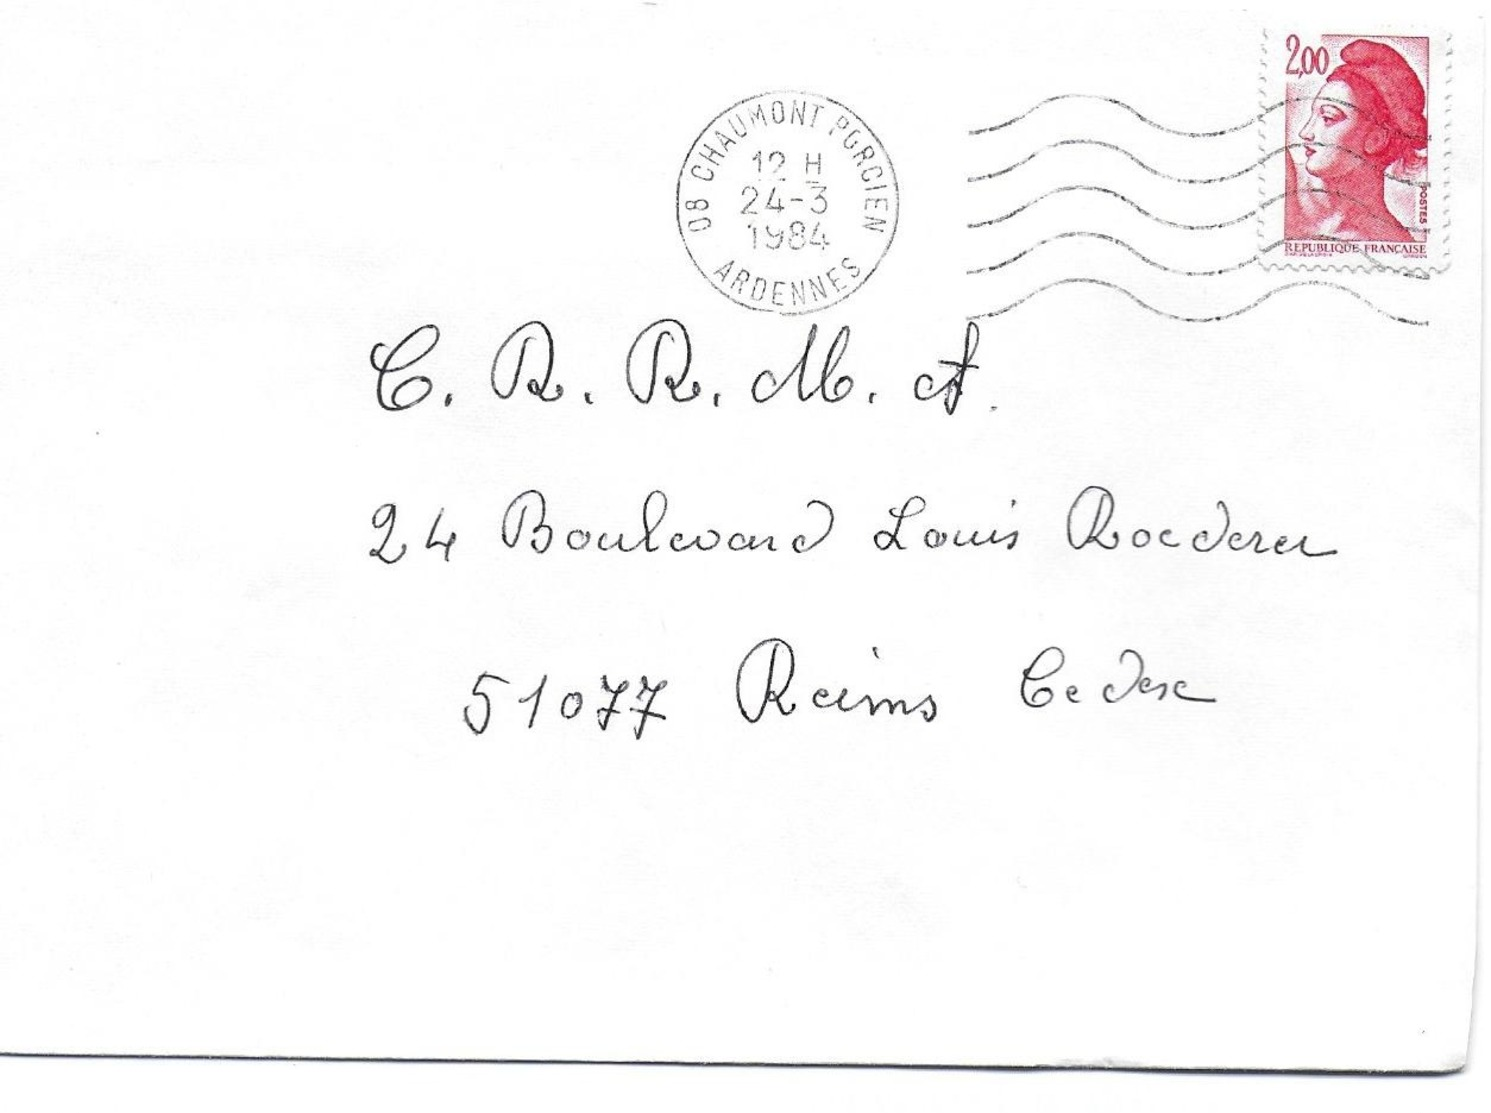 2,00
POSTES
REPUBLIQUE FRANÇAISE
08 CHAUMONT PORCIEN
12 H
24-3
1984
ARDENNES
C. R. R. M. A.
24 Boulevard Louis Roederer
51077 Reims Cedex